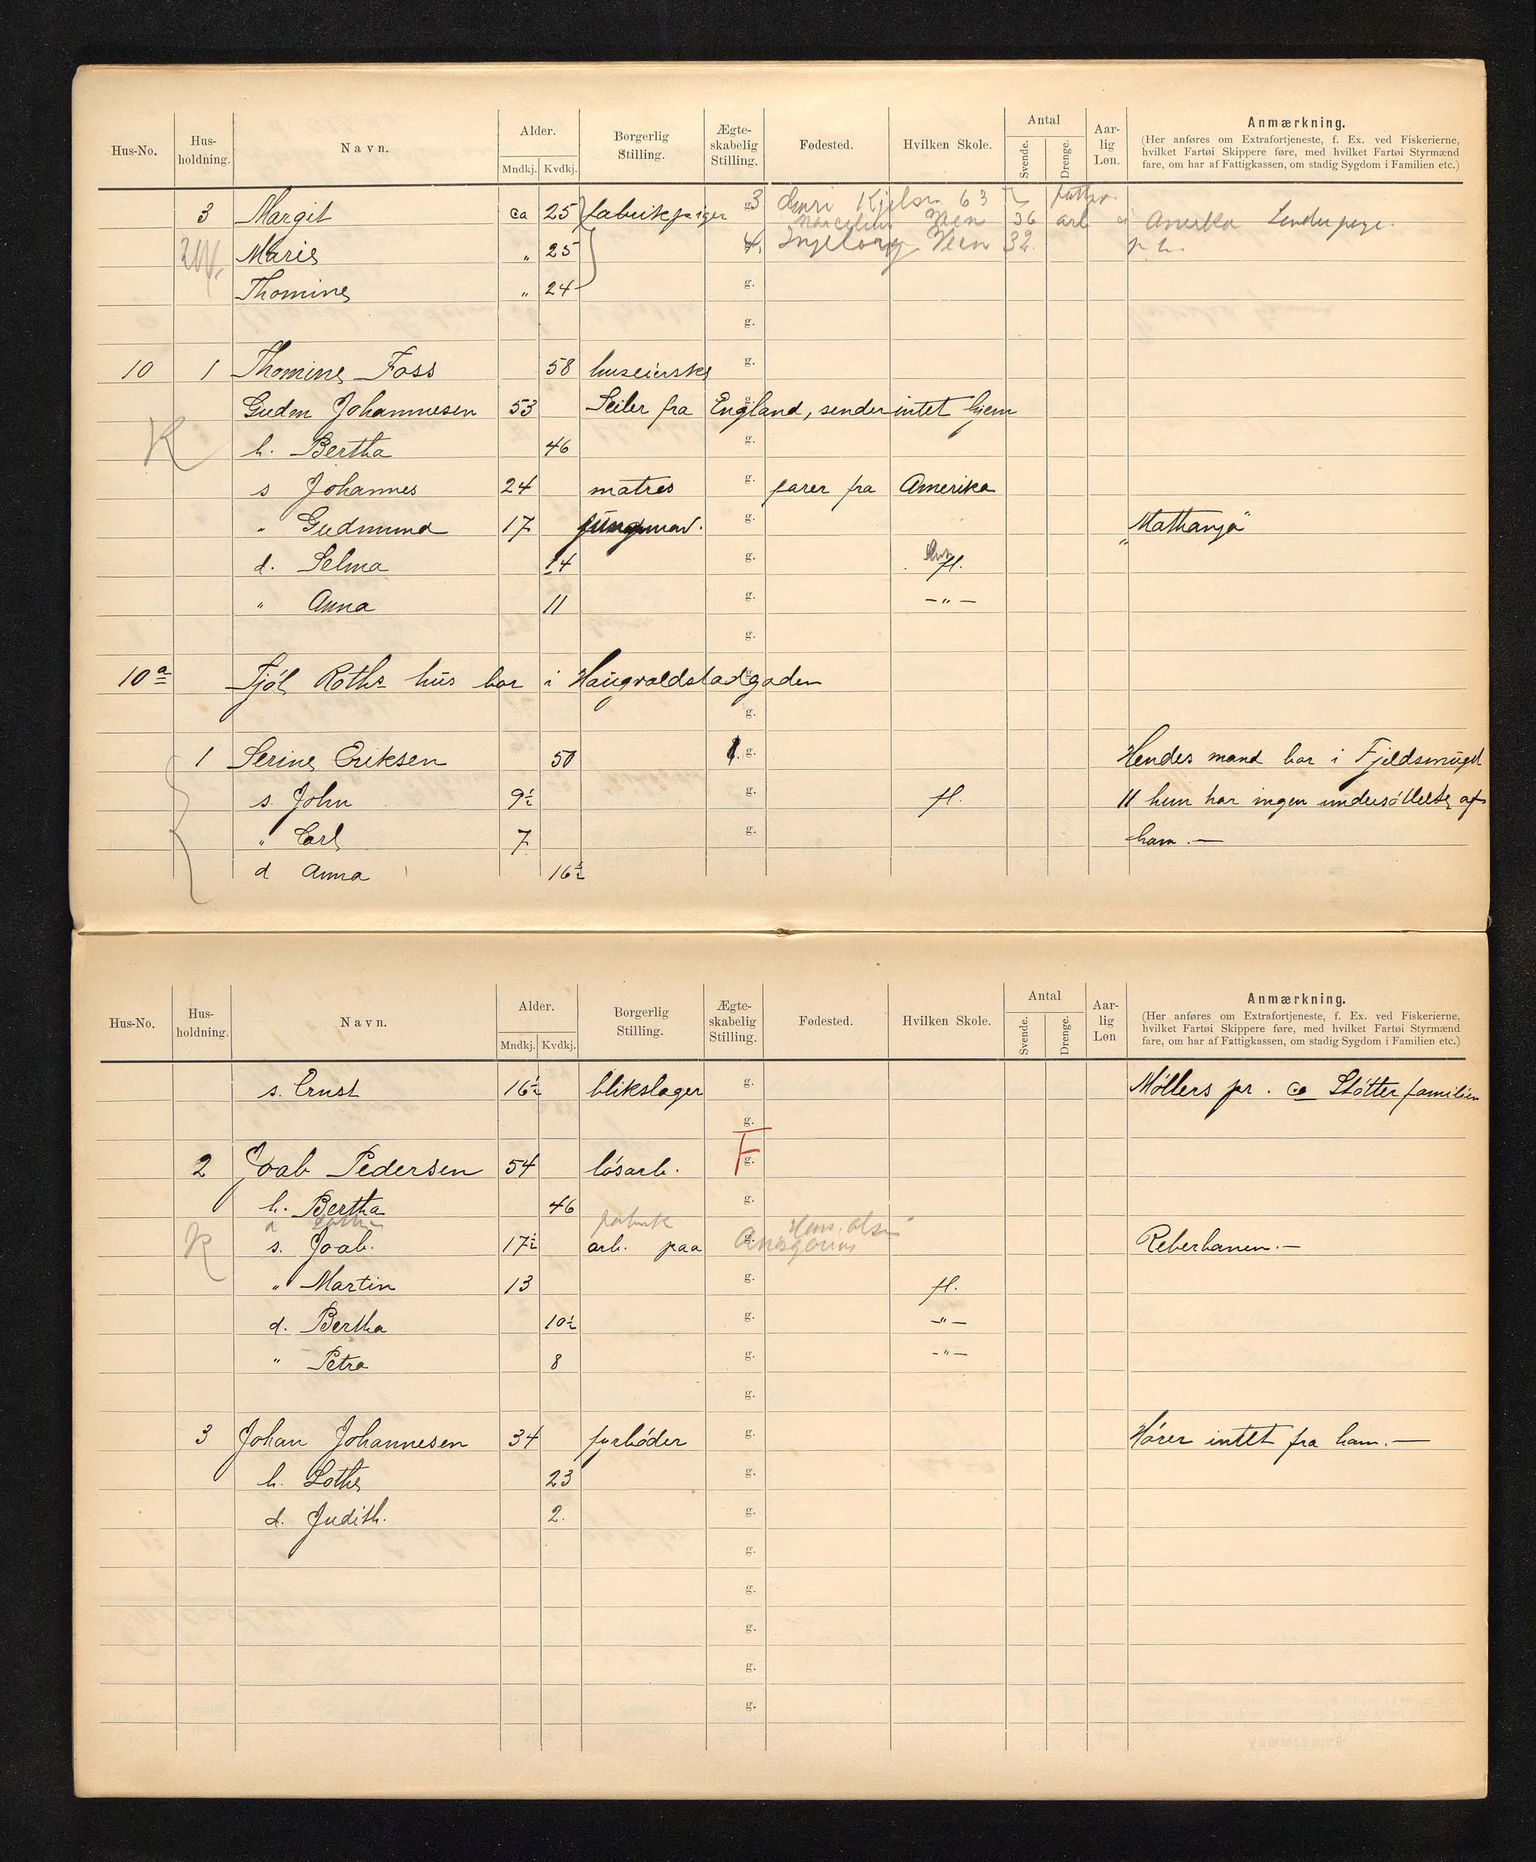 Hus-No. Hus-holdning. Navn. Alder. Mndkj. Kvdkj. Borgerlig Stilling. Ægte-skabelig Stilling. Fødested. Hvilken Skole. Antal Svende. Drenge. Aar-lig Løn. Anmærkning.
(Her anføres om Extrafortjeneste, f. Ex. ved Fiskerierne, hvilket Fartøi Skippere føre, med hvilket Fartøi Styrmænd fare, om har af Fattigkassen, om stadig Sygdom i Familien etc.)
3 Margit ca 25 fabrikpiger g. 3 Kjelsn 63
Veen 36 arb Amerika Sender penge.
Marie " 25 4. Ingeborg Veen 32.
Thomine " 24 g.
g.
10 1 Thomine Foss 58 huseierske g.
Gudm Johannesen 53 Seiler fra England, sender intet hjem
K h. Bertha 46 g.
s Johannes 24 matros g. farer fra Amerika
" Gudmund 17 jungmand. g. "Mathanja"
d. Selma 14 g. fl.
" Anna 11 g. — " —
g.
10a Tjøl Roths hus bor i Haugvaldstadgaden
g.
1 Serine Eriksen 50 g. Hendes mand bor i Fjeldsmuget
s. John 9½ g. fl. 11 hun har ingen understøttelse af
" Carl 7 g. ham. —
d Anna 16½
Hus-No. Hus-holdning. Navn. Alder. Mndkj. Kvdkj. Borgerlig Stilling. Ægte-skabelig Stilling. Fødested. Hvilken Skole. Antal Svende. Drenge. Aar-lig Løn Anmærkning.
(Her anføres om Extrafortjeneste, f. Ex. ved Fiskerierne, hvilket Fartøi Skippere føre, med hvilket Fartøi Styrmænd fare, om har af Fattigkassen, om stadig Sygdom i Familien etc.)
s. Ernst 16½ blikslager g. Møllers pr. co Støtter familien
g.
2 Joab Pedersen 54 løsarb. F g.
h. Bertha 46 g.
fabrik
K s. Joab. 17½ arb. paa g. Reberbanen. —
" Martin 13 g. fl.
d. Bertha 10½ g. — " —
" Petra 8 g. — " —
g.
3 Johan Johannesen 34 fyrbøder g. Hører intet fra ham. —
h. Lothe 23 g.
d. Judith. 2. g.
g.
g.
g.
g.
g.